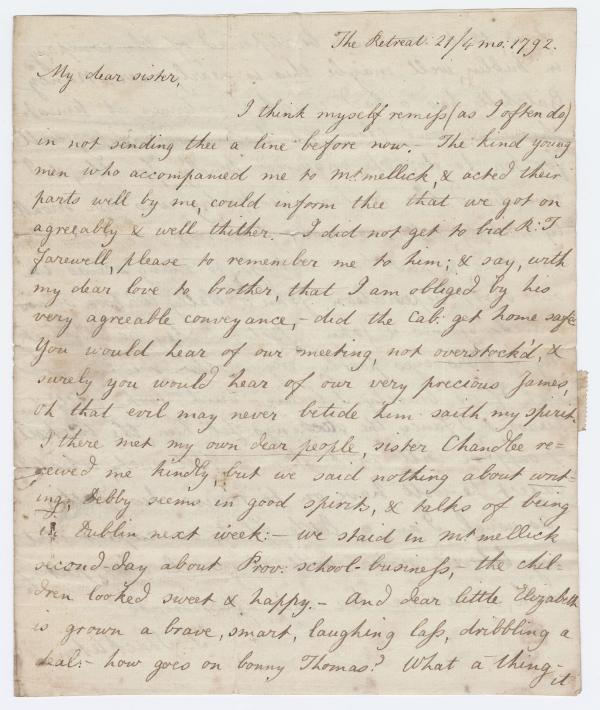 The Retreat: 21/4 mo: 1792.
My dear sister,
I think myself remiss (as I often do)
in not sending thee a line before now. – The kind young
men who accompanied me to Mt mellick, & acted their
parts well by me, could inform thee that we got on
agreeably & well thither. – I did not get to bid R: T
farewell, please to remember me to him; & say, with
my dear love to brother, that I am obliged by his
very agreeable conveyance, – did the Cab: get home safe
You would hear of our meeting, not overstock'd, &
surely you would hear of our very precious James,
oh that evil may never betide him saith my spirit.
I there met my own dear people, sister Chandlee re=
ceived me kindly, but we said nothing about writ-
ing, Debby seems in good spirits, & talks of being
in Dublin next week: – we staid in Mt mellick
second-day about Prov: school-business, – the chil-
dren looked sweet & happy. – And dear little Elizabeth
is grown a brave, smart, laughing lass, dribbling a
deal: – how goes on bonny Thomas? What a thing –
it